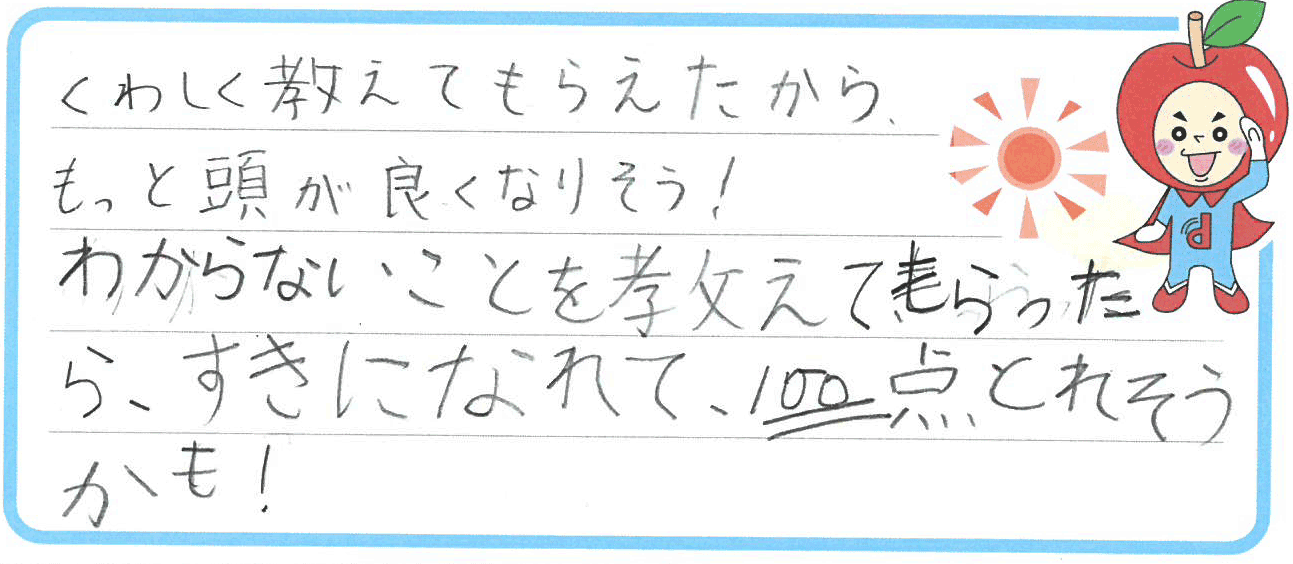 くわしく教えてもらえたから、
もっと頭が良くなりそう!
わからないことを教えてもらった
ら、すきになれて、100点とれそう
かも!
d